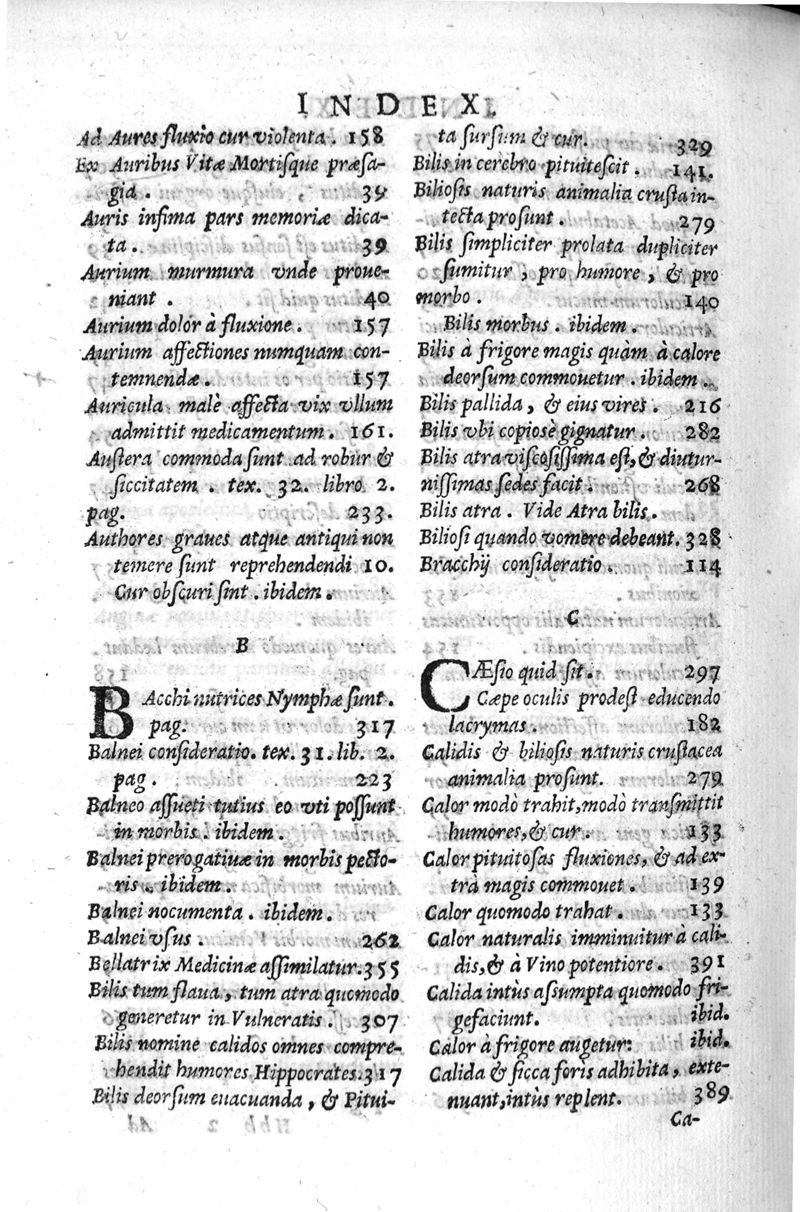 INDEX.
Ad Aures fluxio cur violenta. 158
Ex Auribus Vitæ Mortisque præsa-
gia. 39
Auris infima pars memoriæ dica-
ta. 39
Aurium murmura vnde proue-
niant. 40
Aurium dolor à fluxione. 157
Aurium affectiones numquam con-
temnendæ. 157
Auricula malè affecta vix vllum
admittit medicamentum. 161.
Austera commoda sunt ad robur &
siccitatem. tex. 32. libro 2.
pag. 233.
Authores graues atque antiqui non
temere sunt reprehendendi 10.
Cur obscuri sint. ibidem.
B
BAcchi nutrices Nymphæ sunt.
pag. 317
Balnei consideratio. tex. 31. lib. 2.
pag. 223
Balneo assueti tutius eo vti possunt
in morbis. ibidem.
Balnei prerogatiuæ in morbis pecto-
ris. ibidem.
Balnei nocumenta. ibidem.
Balnei vsus. 262
Bellatrix Medicinæ assimilatur. 355
Bilis tum flaua, tum atra quomodo
generetur in Vulneratis. 307
Bilis nomine calidos omnes compre-
hendit humores Hippocrates. 317
Bilis deorsum euacuanda, & Pitui-
ta sursum & cur. 329
Bilis in cerebro pituitescit. 141.
Biliosis naturis animalia crusta in-
tecta prosunt. 279
Bilis simpliciter prolata dupliciter
sumitur, pro humore, & pro
morbo. 140
Bilis morbus. ibidem.
Bilis à frigore magis quàm à calore
deorsum commouetur. ibidem.
Bilis pallida, & eius vires. 216
Bilis vbi copiosè gignatur. 282
Bilis atra viscosissima est, & diutur-
nissimas sedes facit. 268
Bilis atra. Vide Atra bilis.
Biliosi quando vomere debeant. 328
Bracchij consideratio. 114
C
CÆsio quid sit. 297
Cæpe oculis prodest educendo
lacrymas. 182
Calidis & biliosis naturis crustacea
animalia prosunt. 279
Calor modò trahit, modò transmittit
humores, & cur. 133
Calor pituitosas fluxiones, & ad ex-
trà magis commouet. 139
Calor quomodo trahat. 133
Calor naturalis imminuitur à cali-
dis, & à Vino potentiore. 391
Calida intùs assumpta quomodo fri-
gefaciunt. ibid.
Calor à frigore augetur: ibid.
Calida & sicca foris adhibita, exte-
nuant, intùs replent. 389
Ca-